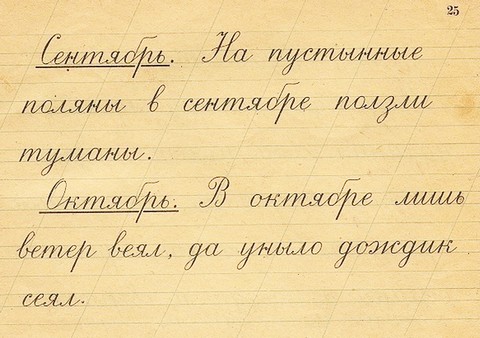 25
Сентябрь. На пустынные
поляны в сентябре ползли
туманы.
Октябрь. В октябре лишь
ветер веял, да уныло дождик
сеял.